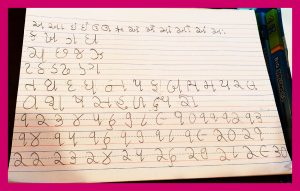 અ આ ઇ ઈ ઉ ઊ ઋ એ ઐ ઓ ઔ અં અઃ
ક ખ ગ ઘ
ચ છ જ ઝ
ટ ઠ ડ ઢ ણ
ત થ દ ધ ન પ ફ બ ભ મ ય ર લ
વ શ ષ સ હ ળ ક્ષ જ્ઞ
૧ ૨ ૩ ૪ ૫ ૬ ૭ ૮ ૯ ૧૦ ૧૧ ૧૨ ૧૩
૧૪ ૧૫ ૧૬ ૧૭ ૧૮ ૧૯ ૨૦ ૨૧
૨૨ ૨૩ ૨૪ ૨૫ ૨૬ ૨૭ ૨૮ ૨૯ ૩૦